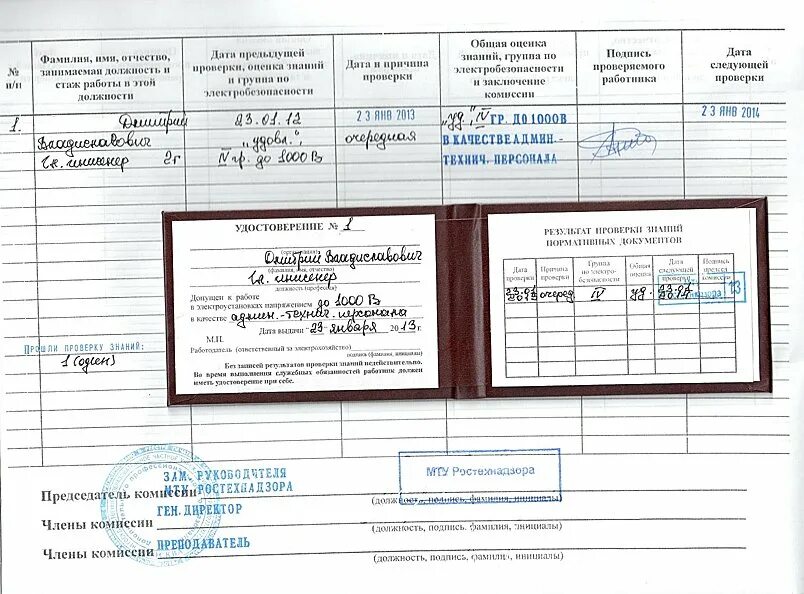 № п/п
Фамилия, имя, отчество, занимаемая должность и стаж работы в этой должности
Дата предыдущей проверки, оценка знаний и группа по электробезопасности
Дата и причина проверки
Общая оценка знаний, группа по электробезопасности и заключение комиссии
Подпись проверяемого работника
Дата следующей проверки
1. Дмитрий 23.01.12 23 ЯНВ 2013 "уд", IV ГР. ДО 1000В 23 ЯНВ 2014
Владиславович "удовл.", очередная В КАЧЕСТВЕ АДМИН.-
Гл. инженер 2г IV гр. до 1000 В ТЕХНИЧ. ПЕРСОНАЛА
УДОСТОВЕРЕНИЕ № 1
(организация)
Дмитрий Владиславович
(фамилия, имя, отчество)
Гл. инженер
должность (профессия)
Допущен к работе
в электроустановках напряжением до 1000 В
в качестве админ.-технич. персонала
Дата выдачи 23 января 2013г.
М.П.
Работодатель (ответственный за электрохозяйство)
подпись (фамилия, инициалы)
Без записей результатов проверки знаний недействительно.
Во время выполнения служебных обязанностей работник должен
иметь удостоверение при себе.
РЕЗУЛЬТАТ ПРОВЕРКИ ЗНАНИЙ
НОРМАТИВНЫХ ДОКУМЕНТОВ
Дата проверки
Причина проверки
Группа по электробезопасности
Общая оценка
Дата следующей проверки
Подпись председ. комиссии
23.01 2013 очеред IV уд. 23.01 2014 13
ПРОШЛИ ПРОВЕРКУ ЗНАНИЙ:
1 (один)
ЗАМ. РУКОВОДИТЕЛЯ
МТУ РОСТЕХНАДЗОРА
МТУ Ростехнадзора
Председатель комиссии
(должность, подпись, фамилия, инициалы)
ГЕН. ДИРЕКТОР
Члены комиссии
(должность, подпись. фамилия, инициалы)
ПРЕПОДАВАТЕЛЬ
Члены комиссии
(должность, подпись, фамилия, инициалы)